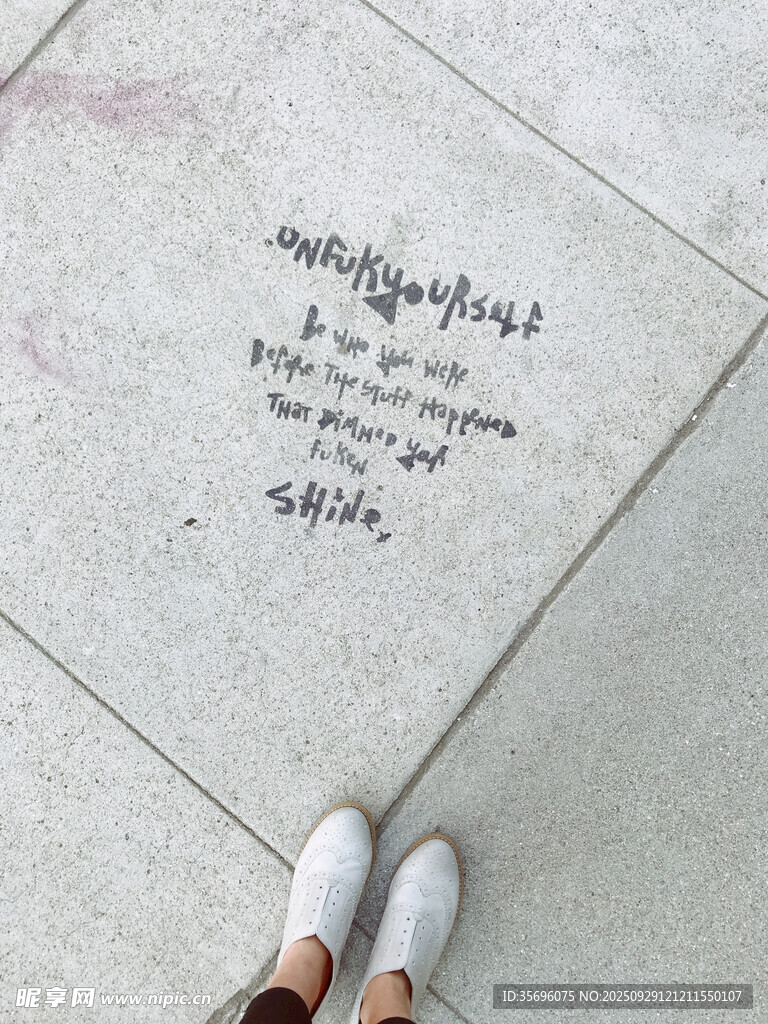 .UNFUKYOURSELF
Be WHO You WERE
Before THE STUFF HAPPENED
THAT DIMMED YOUR
FUKEN
SHINE.x
昵享网 www.nipic.cn
ID:35696075 NO:20250929121211550107